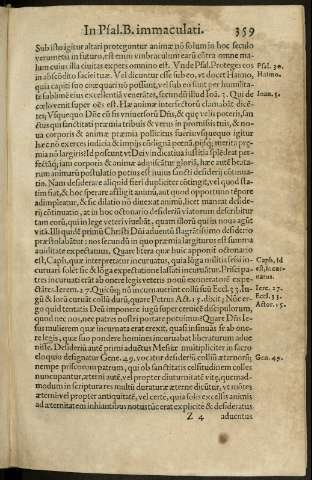 In Psal. B. immaculati. 359
Sub isto igitur altari proteguntur animæ nõ solum in hoc seculo
verumetiã in futuro, est enim vmbraculum earũ cõtra omne ma-
lum cuius illa ciuitas expers omnino est. Vnde Psal. Proteges eos
in abscõdito faciei tuæ. Vel dicuntur esse sub eo, vt docet Haimo,
quia capiti suo coæquari nõ possunt, vel sub
te sublimē eius excellentiã venerãtur, secundũ illud Ioã. 1. Qui de
cœlo venit super oēs est. Hæ animæ intersectorũ clamãbãt dicē-
tes; Vsquequo
ctus qui sanctitati præmia tribuis & verus in promissis tuis, & no-
ua corporis & animæ præmia pollicitus
hæc nõ exerces iudicia & impiis cõdignã pœnã, piisq; merita præ-
mia nõ largiris? Id poscunt vt Dei vindicatiua iustitia splēdeat per-
fectãq; iam corporis & animæ adipiscãtur gloriã, hæc autē beata-
rum animarũ postulatio potius est
tu. Nam desiderare aliquid fieri dupliciter cõtingit, vel quod sta-
tim fiat, & hoc sperare affligit animũ, aut quod opportuno tēpore
adimpleatur, & sic dilatio nõ
rij cõtinuatio, at in hoc octonario desideria viatorum describitur
tam eorũ, qui in lege veteri viuebãt, quam illorũ qui in noua agũt
vita. Illi quidē primũ Christi Dñi aduentũ flagrãtissimo desiderio
præstolabãtur: nos secundũ in quo præmia largiturus est summa
auiditate expectamus. Quare litera quæ huic apponit octonario
est, Caph, quæ interpretatur incuruatus, quia lõga militia sessi in-
curuari solēt sic & lõga expectatione lassati incuruãtur. Prisci pa-
tres incuruati erãt ab onere legis veteris nouũ exonerationē expe-
ctãtes. Ierem. 27. Quicũq; nõ incuruauerint collũ suũ Eccl. 33. Iu-
gũ & lorũ curuãt collũ durũ, quare Petrus Act. 15. dixit; Nõc er-
go quid tentatis Deũ imponere iugũ super ceruicē discipulorum,
quod nec nos, nec patres nostri portare potuimus: Quare Dñs Ie-
sus mulierem quæ incuruata erat erexit, quasi insinuãs se ab one-
re legis, quæ suo pondere homines incuruabat liberaturum adue-
nisse. Desideriũ autē primi aduētus Messiæ multipliciter in sacro
eloquio designatur Gene. 49. vocatur desideriũ colliũ æternorũ;
nempe priscorum patrum, qui ob sanctitatis celsitudinem colles
nuncupantur, æterni autē, vel propter diuturnitatē vitę, quemad-
modum in scriptura res multũ duraturæ æternæ dicũtur, vt mõtes
æterni: vel propter antiquitatē, vel certe, quia solis excelsis animis
ad æternitatem inhiantibus
Z 4 aduentus
Psal. 30.
Haimo.
Ioan. 3.
Caph, Id
est, incur-
uatus.
Iere. 27.
Eccl. 33.
Actor. 15.
Gen. 49.